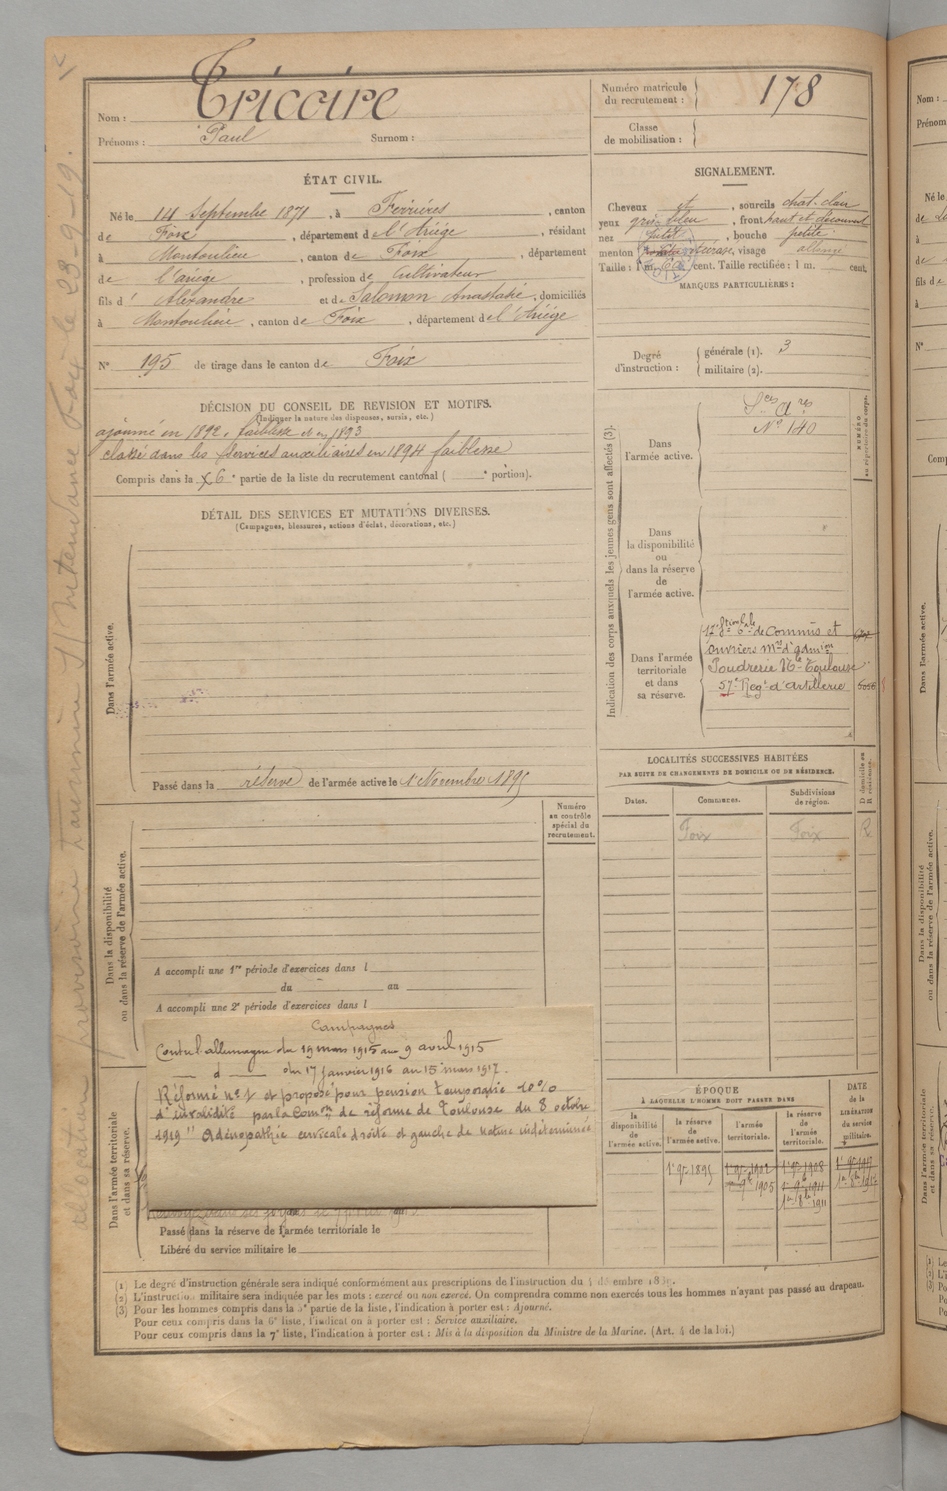 Nom : Tricoire
Prénoms : Paul Surnom :
Numéro matricule du recrutement : 178
Classe de mobilisation :
ÉTAT CIVIL.
Né le 14 Septembre 1871, à Ferrières, canton
de Foix, département de l'Ariège, résidant
à Montoulieu, canton de Foix, département
de l'Ariège, profession de Cultivateur
fils d' Alexandre et de Salomon Anastasie, domiciliés
à Montoulieu, canton de Foix, département de l'Ariège
N° 195 de tirage dans le canton de Foix
SIGNALEMENT.
Cheveux et, sourcils chât. clair
yeux gris bleu, front haut et découvert
nez petit, bouche petite
menton, visage allongé
Taille : 1 m. cent. Taille rectifiée : 1 m. cent.
MARQUES PARTICULIÈRES :
Degré d'instruction : générale (1). 3
militaire (2).
DÉCISION DU CONSEIL DE REVISION ET MOTIFS.
(Indiquer la nature des dispenses, sursis, etc.)
ajourné en 1892, faiblesse et en 1893
classé dans les services auxiliaires en 1894 faiblesse
Compris dans la 6e partie de la liste du recrutement cantonal ( e portion).
DÉTAIL DES SERVICES ET MUTATIONS DIVERSES.
(Campagnes, blessures, actions d'éclat, décorations, etc.)
Dans l'armée active.
Passé dans la réserve de l'armée active le 1 Novembre 1895
Indication des corps auxquels les jeunes gens sont affectés (3).
NUMÉRO au répertoire du corps.
Dans l'armée active.
Sces Ares
N° 140
Dans la disponibilité ou dans la réserve de l'armée active.
Dans l'armée territoriale et dans sa réserve.
de Commis et
ouvriers
Poudrerie Toulouse
57e Régt d'artillerie
LOCALITÉS SUCCESSIVES HABITÉES
PAR SUITE DE CHANGEMENTS DE DOMICILE OU DE RÉSIDENCE.
Dates. Communes. Subdivisions de région. D domicile ou R résidence.
Foix Foix R
Numéro au contrôle spécial du recrutement.
Dans la disponibilité ou dans la réserve de l'armée active.
A accompli une 1re période d'exercices dans l
du au
A accompli une 2e période d'exercices dans l
Campagnes
Contre l'allemagne du 19 mars 1915 au 9 avril 1915
d du 17 janvier 1916 au 15 mars 1917.
Réformé n° 1 et proposé pour pension temporaire 10%
d'invalidité par la Comon de réforme de Toulouse du 8 octobre
1919 "Adénopathie cervicale droite et gauche de nature indéterminée
Dans l'armée territoriale et dans sa réserve.
Passé dans la réserve de l'armée territoriale le
Libéré du service militaire le
ÉPOQUE
À LAQUELLE L'HOMME DOIT PASSER DANS
la disponibilité de l'armée active. la réserve de l'armée active. l'armée territoriale. la réserve de l'armée territoriale. DATE de la LIBÉRATION du service militaire.
1er 9bre 1895 1er 9bre 1902 1er 9bre 1908 1er 9bre 1917
1905 1911
1911
(1) Le degré d'instruction générale sera indiqué conformément aux prescriptions de l'instruction du 4 décembre 1889.
(2) L'instruction militaire sera indiquée par les mots : exercé ou non exercé. On comprendra comme non exercés tous les hommes n'ayant pas passé au drapeau.
(3) Pour les hommes compris dans la 5e partie de la liste, l'indication à porter est : Ajourné.
Pour ceux compris dans la 6e liste, l'indication à porter est : Service auxiliaire.
Pour ceux compris dans la 7e liste, l'indication à porter est : Mis à la disposition du Ministre de la Marine. (Art. 4 de la loi.)